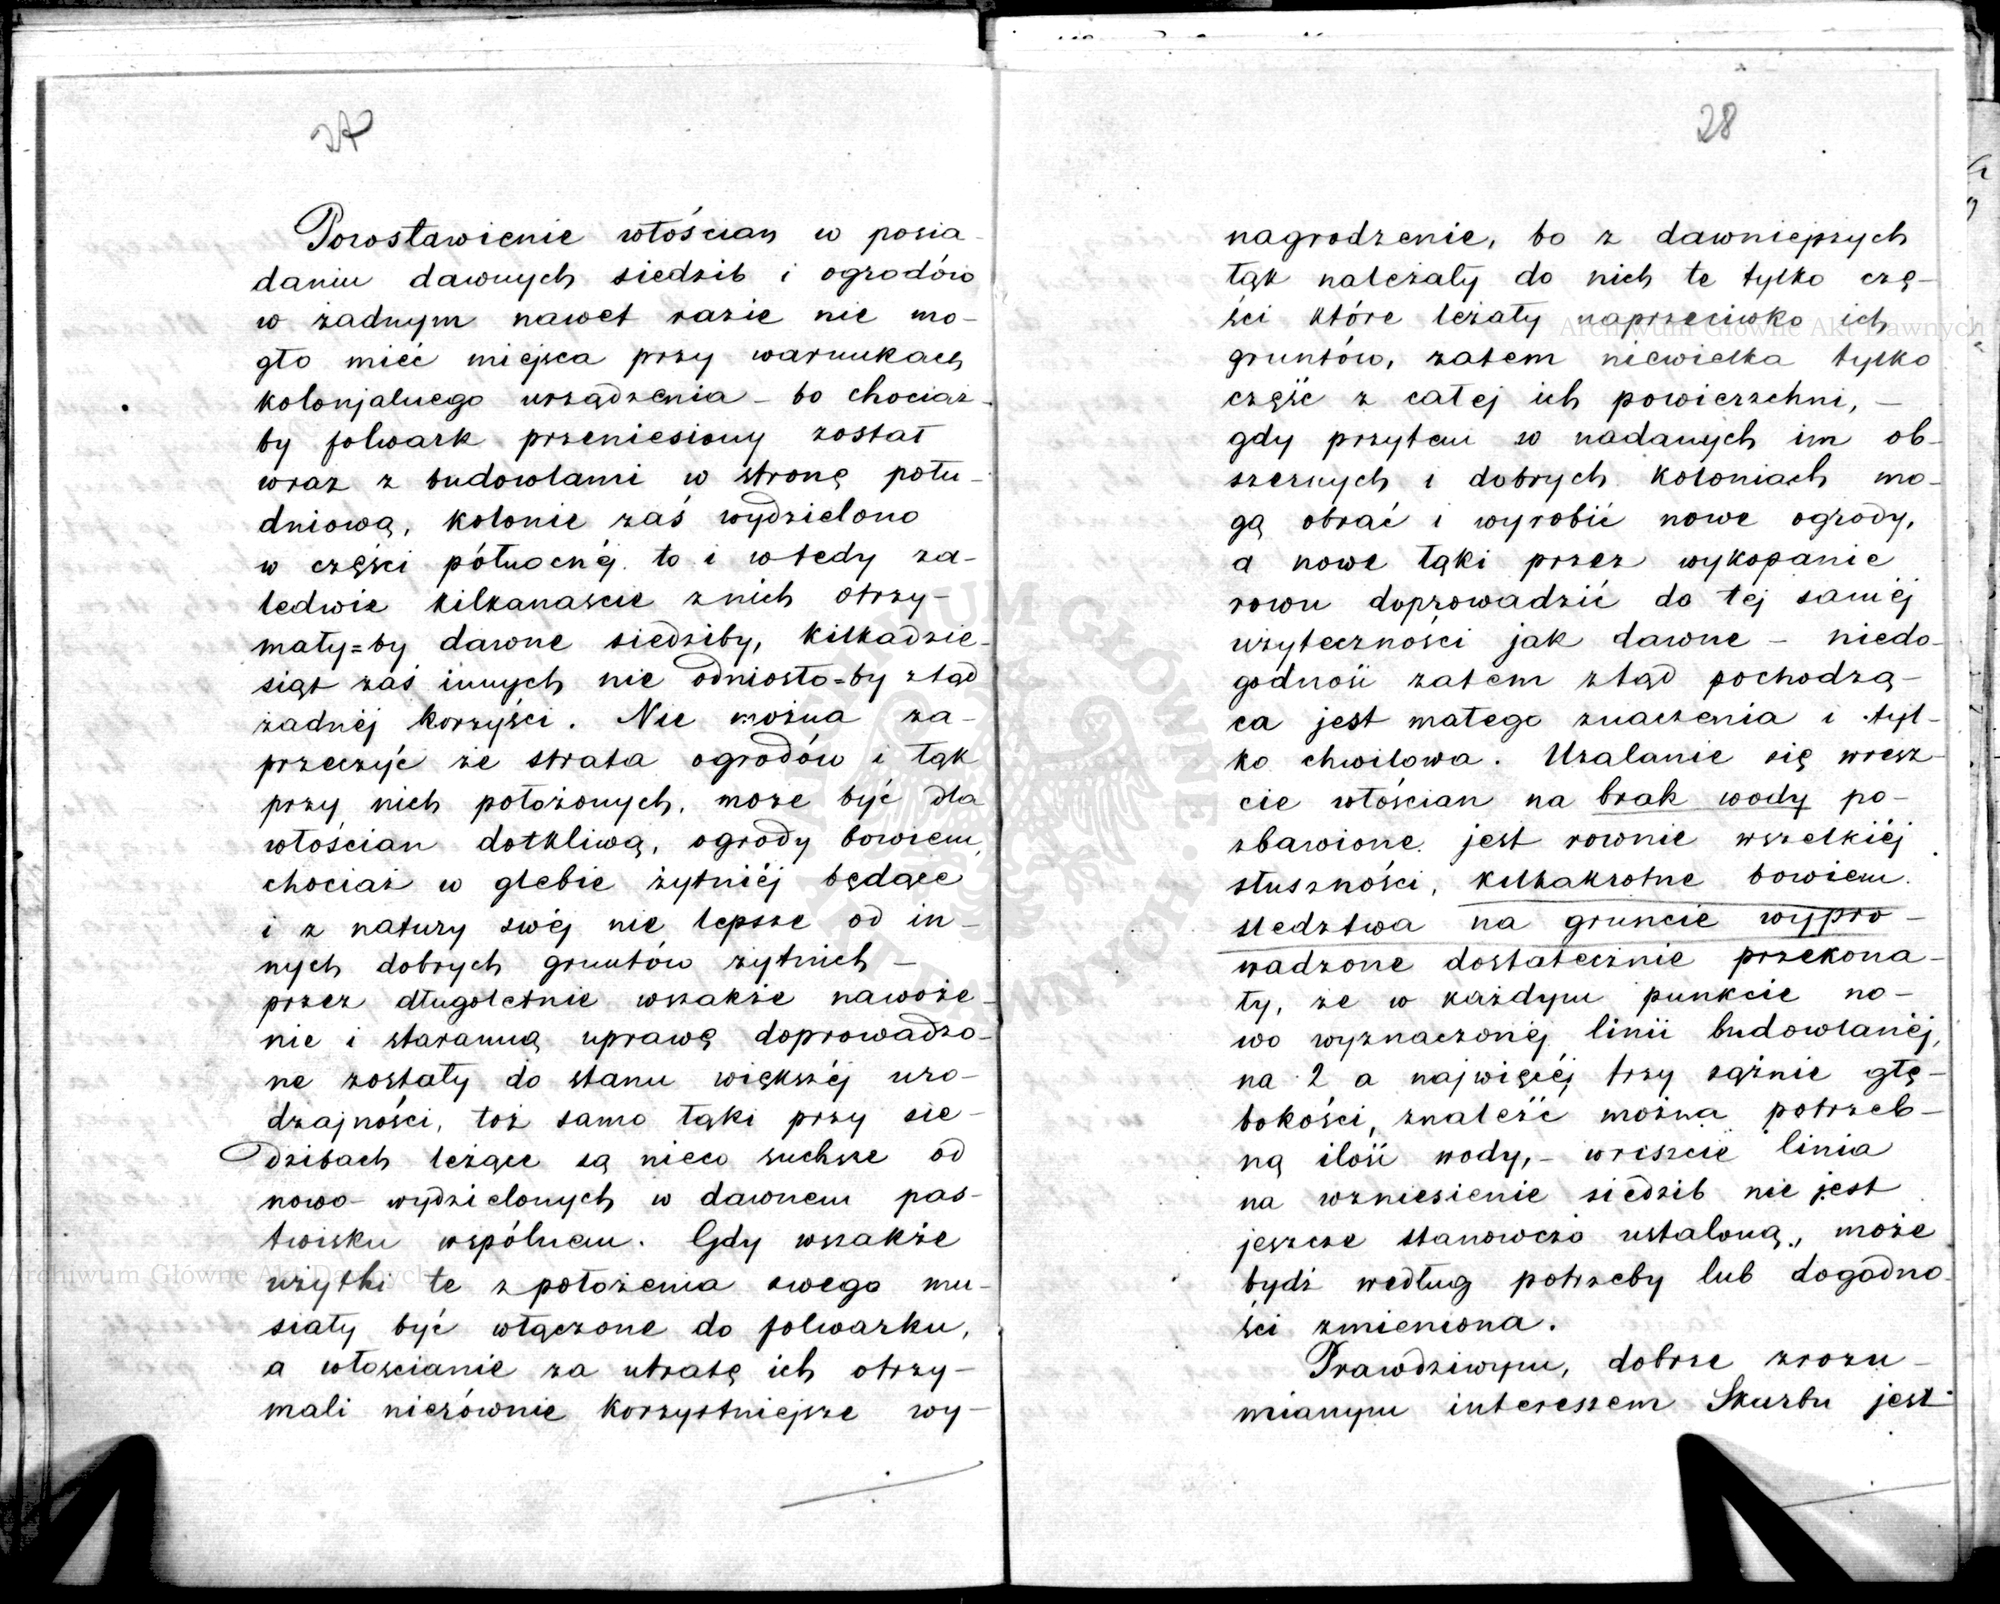 27
Pozostawienie włościan w posia-
daniu dawnych siedzib i ogrodów
w żadnym nawet razie nie mo-
gło mieć miejsca przy warunkach
kolonjalnego urządzenia - bo chociaż-
by folwark przeniesiony został
wraz z budowlami w stronę połu-
dniową, kolonie zaś wydzielono
w części północnéj. to i wtedy za-
ledwie kilkanaście z nich otrzy-
mały=by dawne siedziby, kilkadzie-
siąt zaś innych nie odniosło=by ztąd
żadnéj korzyści. Nie można za-
przeczyć że strata ogrodów i łąk
przy nich położonych, może być dla
włościan dotkliwą, ogrody bowiem,
chociaż w glebie żytniéj będące
i z natury swéj nie lepsze od in-
nych dobrych gruntów żytnich -
przez długoletnie wszakże nawoże-
nie i staranną uprawę doprowadzo-
ne zostały do stanu większéj uro-
dzajności, toż samo łąki przy sie-
dzibach leżące są nieco suchsze od
nowo wydzielonych w dawnem pas-
twisku wspólnem. Gdy wszakże
użytki te z położenia swego mu-
siały być włączone do folwarku,
a włościanie za utratę ich otrzy-
mali nierównie korzystniejsze wy-
28
nagrodzenie, bo z dawniejszych
łąk należały do nich te tylko czę-
ści które leżały naprzeciwko ich
gruntów, zatem niewielka tylko
część z całej ich powierzchni, -
gdy przytem w nadanych im ob-
szernych i dobrych koloniach mo-
gą obrać i wyrobić nowe ogrody,
a nowe łąki przez wykopanie
rowu doprowadzić do tej saméj
użyteczności jak dawne - niedo-
godność zatem ztąd pochodzą-
ca jest małego znaczenia i tyl-
ko chwilowa. Użalanie się wresz-
cie włościan na brak wody po-
zbawione jest rownie wszelkiéj
słuszności, kilkakrotne bowiem
śledztwa na gruncie wypro-
wadzone dostatecznie przekona-
ły, że w każdym punkcie no-
wo wyznaczonéj linii budowlanéj,
na 2 a najwięcéj trzy sążnie głę-
bokości, znaleźć można potrzeb-
ną ilość wody, - wreszcie linia
na wzniesienie siedzib nie jest
jeszcze stanowczo ustaloną, może
bydź według potrzeby lub dogodno-
ści zmieniona.
Prawdziwym, dobrze zrozu-
mianym interessem Skarbu jest
Archiwum Główne Akt Dawnych
Archiwum Główne Akt Dawnych